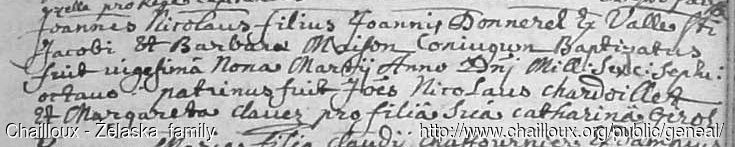 Joannes Nicolaus filius Joannis Donneret Ex Valle Sti
Jacobi Et Barbara Maison Coniugum Baptizatus
fuit uigesimâ Nona Martij Anno Dnj Mill: Sexc: Septu:
octauo patrinus fuit Joës Nicolaus chardoillet
et Margareta clauez pro filiâ Suâ catharinâ
filia claudij
Chailloux - Zelaska family
http://www.chailloux.org/public/geneal/